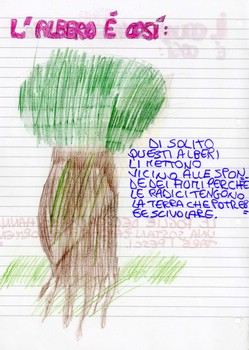 L'ALBERO É COSÍ:
DI SOLITO
QUESTI ALBERI
LI METTONO
VICINO ALLE SPON
DE DEI FIUMI PERCHE
LE RADICI TENGONO
LA TERRA CHE POTREB
BE SCIVOLARE.